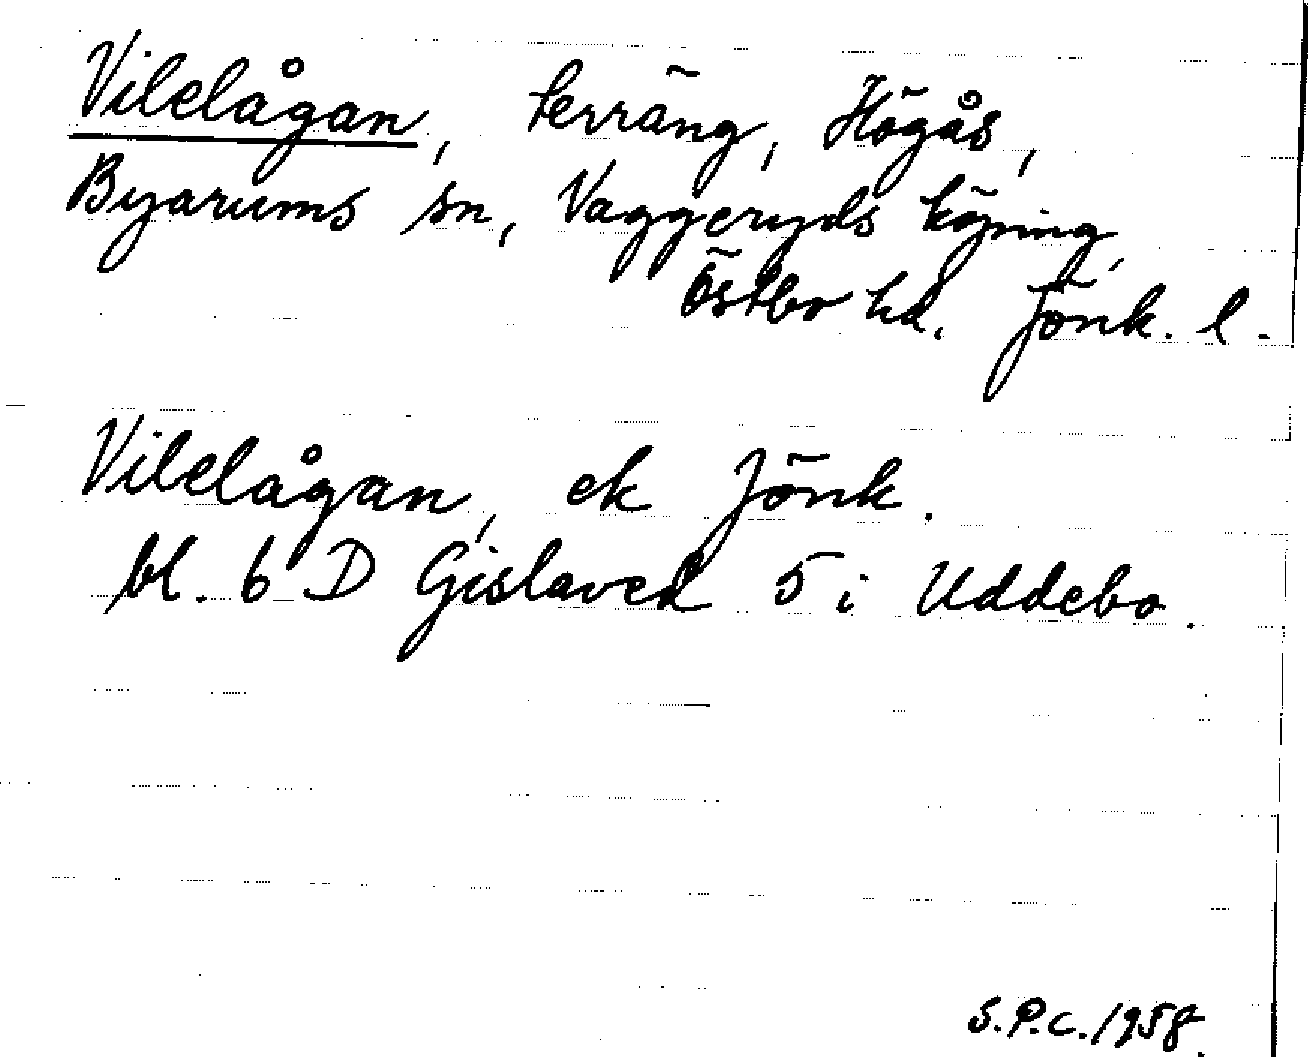 Vilelågan, terräng, Högås,
Byarums sn, Vaggeryds köping,
Östbo hd. Jönk. l.
Vilelågan, ek Jönk.
bl. 6 D Gislaved 5 i Uddebo.
S.P.C. 1958.